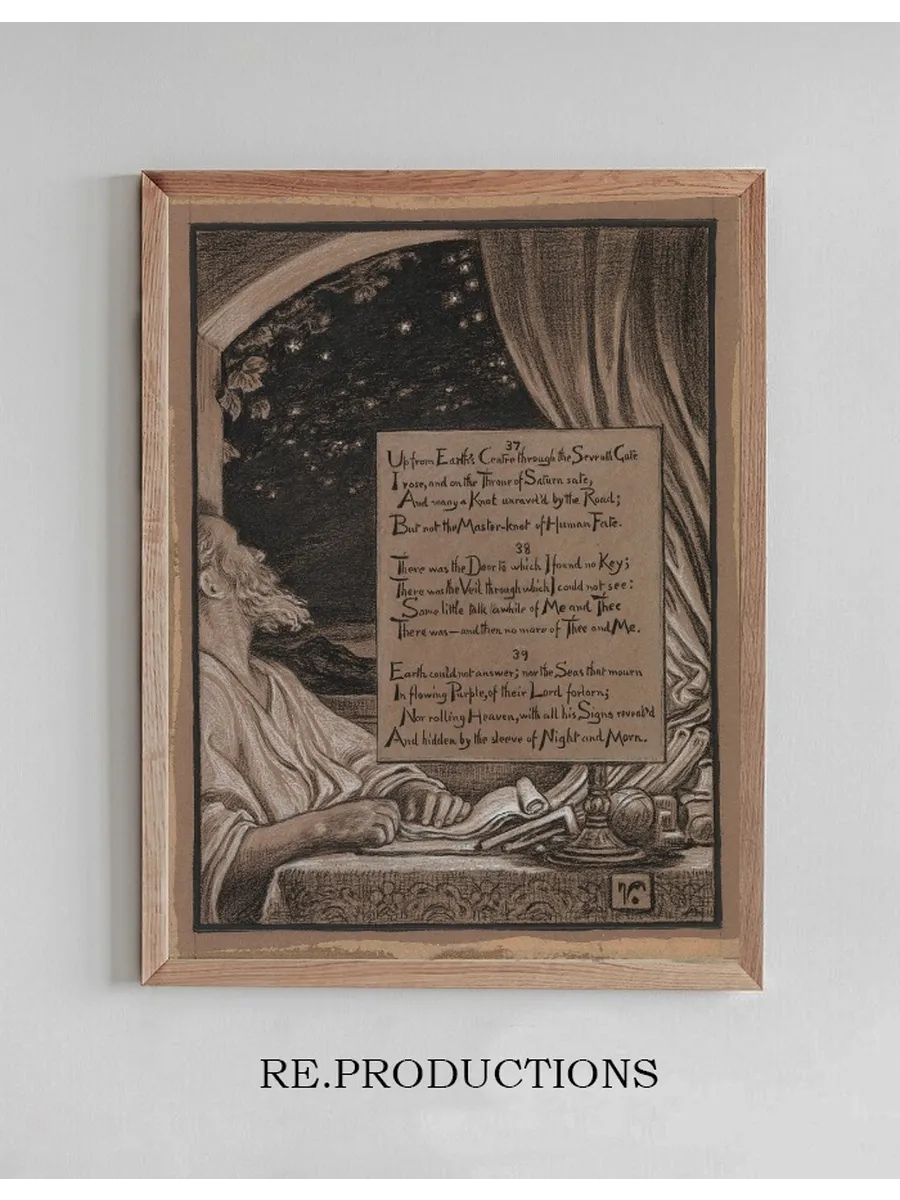 37
Up from Earth's Centre through the Seventh Gate
I rose, and on the Throne of Saturn sate,
And many a Knot unravel'd by the Road;
But not the Master-knot of Human Fate.
38
There was the Door to which I found no Key;
There was the Veil through which I could not see:
Some little talk awhile of Me and Thee
There was—and then no more of Thee and Me.
39
Earth could not answer; nor the Seas that mourn
In flowing Purple, of their Lord forlorn;
Nor rolling Heaven, with all his Signs reveal'd
And hidden by the sleeve of Night and Morn.
RE.PRODUCTIONS